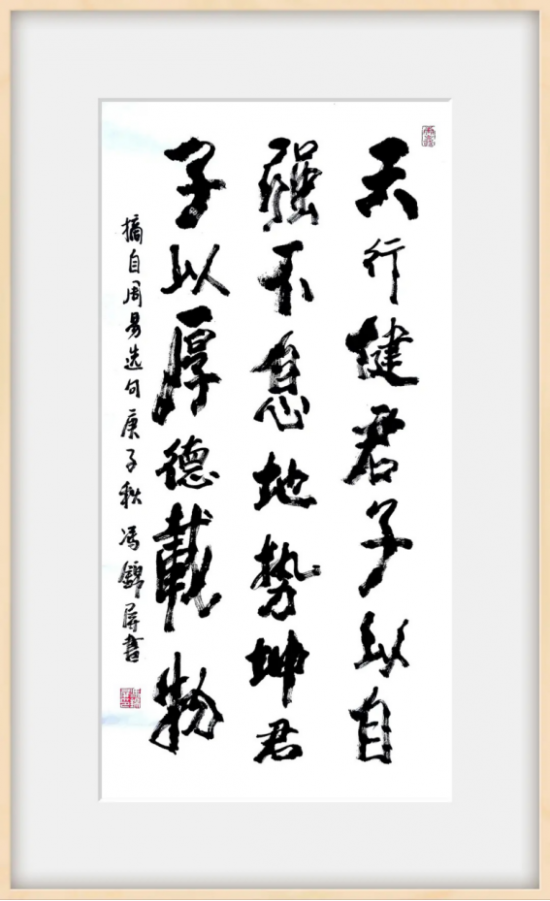 天行健君子以自
强不息地势坤君
子以厚德载物
摘自周易选句庚子秋冯锦屏书